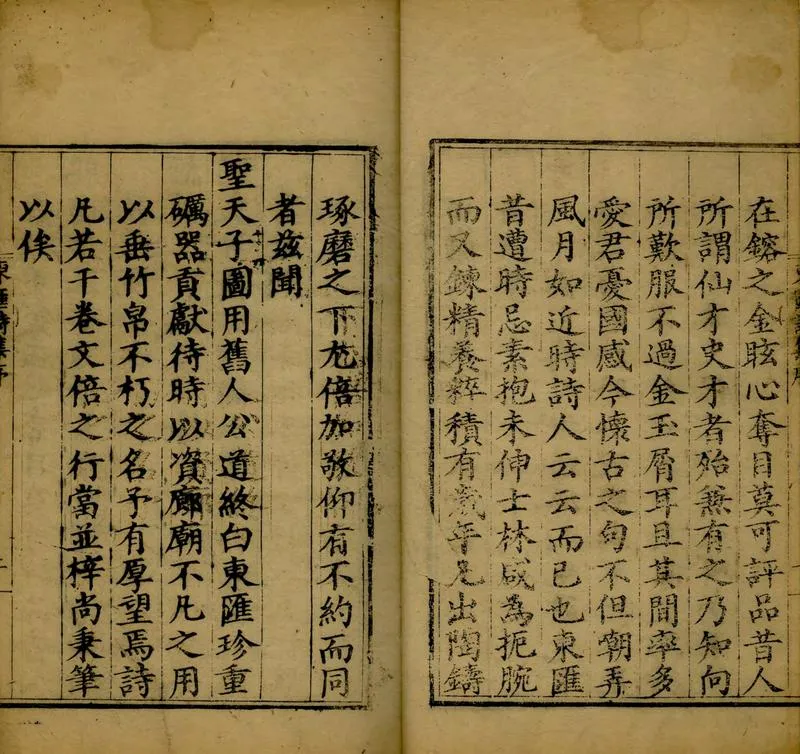 在鎔之金眩心奪目莫可評品昔人
所謂仙才史才者殆兼有之乃知向
所歎服不過金玉屑耳且其間率多
愛君憂國感今懷古之句不但嘲弄
風月如近時詩人云云而已也東匯
昔遭時忌素抱未伸士林咸為扼腕
而又鍊精養粹積有歲年凡出陶鑄
琢磨之下尤倍加敬仰有不約而同
者茲聞
聖天子圖用舊人公道終白東匯珍重
礪器貢獻待時以資廊廟不凡之用
以垂竹帛不朽之名予有厚望焉詩
凡若干卷文倍之行當並梓尚秉筆
以俟